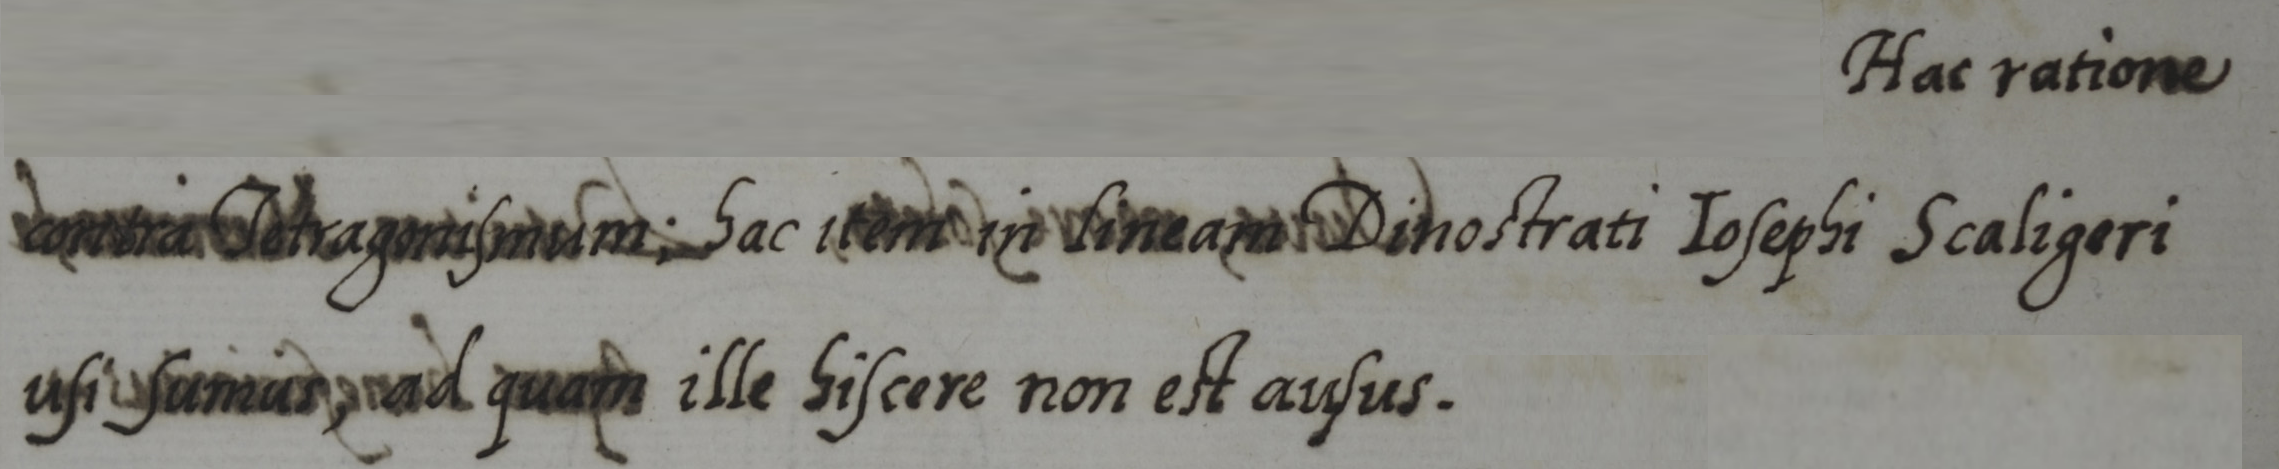 Hac ratione
contra Tetragonismum; hac item in lineam Dinostrati Iosephi Scaligeri
usi sumus, ad quam ille hiscere non est ausus.